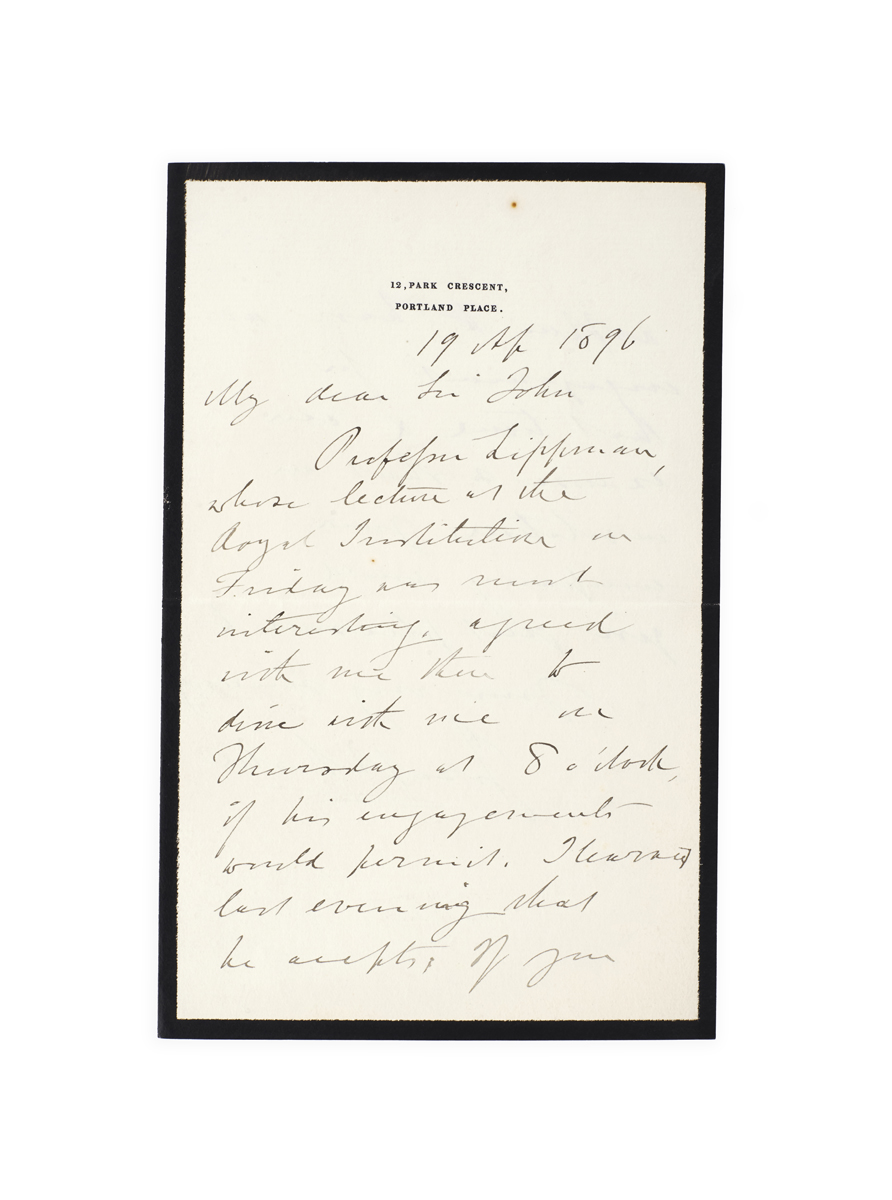 12, PARK CRESCENT,
PORTLAND PLACE.
19 Ap 1896
My dear Sir John
Professor Lippman,
whose lecture at the
Royal Institution on
Friday was most
interesting, agreed
with me there to
dine with me on
Thursday at 8 o'clock,
if his engagements
would permit. I learned
last evening that
he accepts; If you